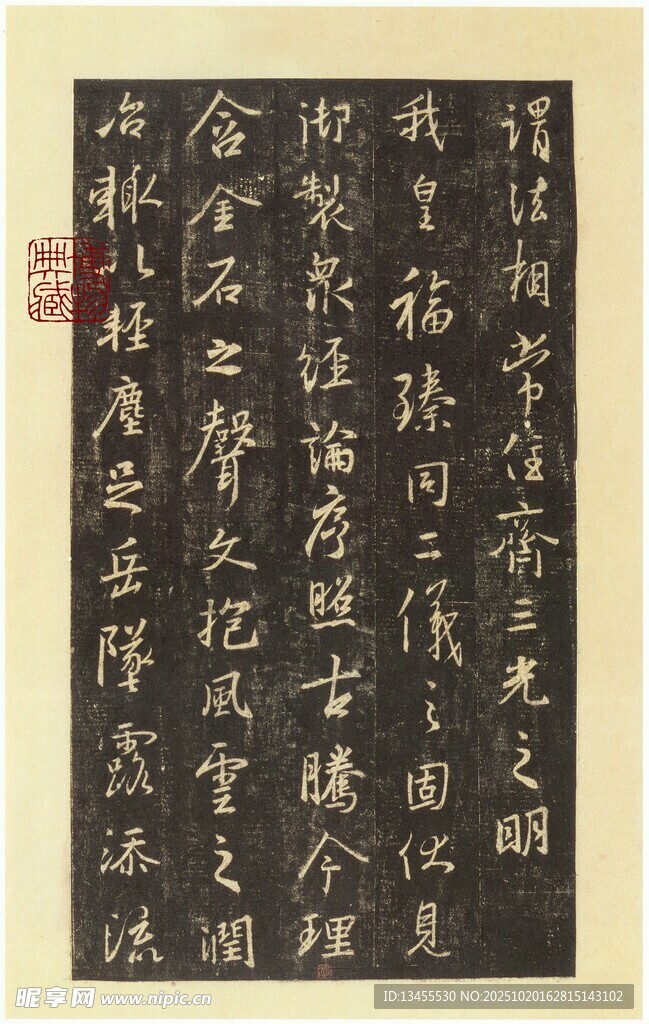 謂法相常住齊三光之明
我皇福臻同二儀之固伏見
御製衆經論序照古騰今理
含金石之聲文抱風雲之潤
治輒以輕塵足岳墜露添流
典藏
昵享网 www.nipic.cn
ID:13455530 NO:20251020162815143102